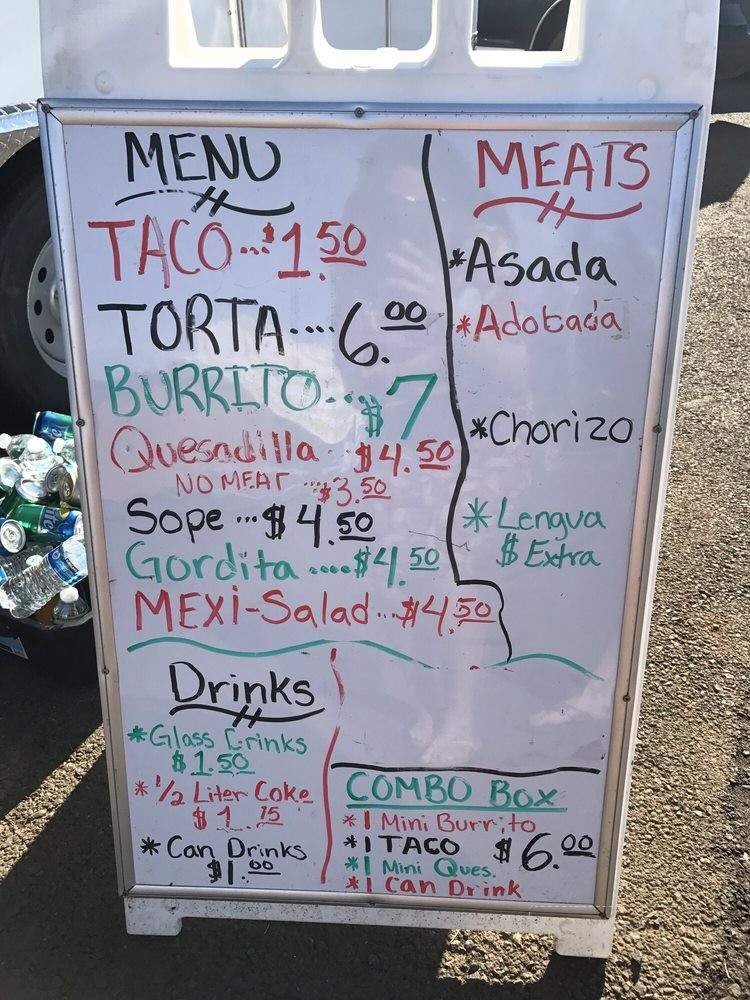 MENU
TACO...$1.50
TORTA....6.00
BURRITO...$7
Quesadilla..$4.50
NO MEAT...$3.50
Sope...$4.50
Gordita.....$4.50
MEXI-Salad...$4.50
MEATS
*Asada
*Adobada
*Chorizo
*Lengua
$ Extra
Drinks
*Glass Drinks
$1.50
*1/2 Liter Coke
$1.75
*Can Drinks
$1.00
COMBO Box
*1 Mini Burrito
*1 TACO $6.00
*1 Mini Ques.
*1 Can Drink